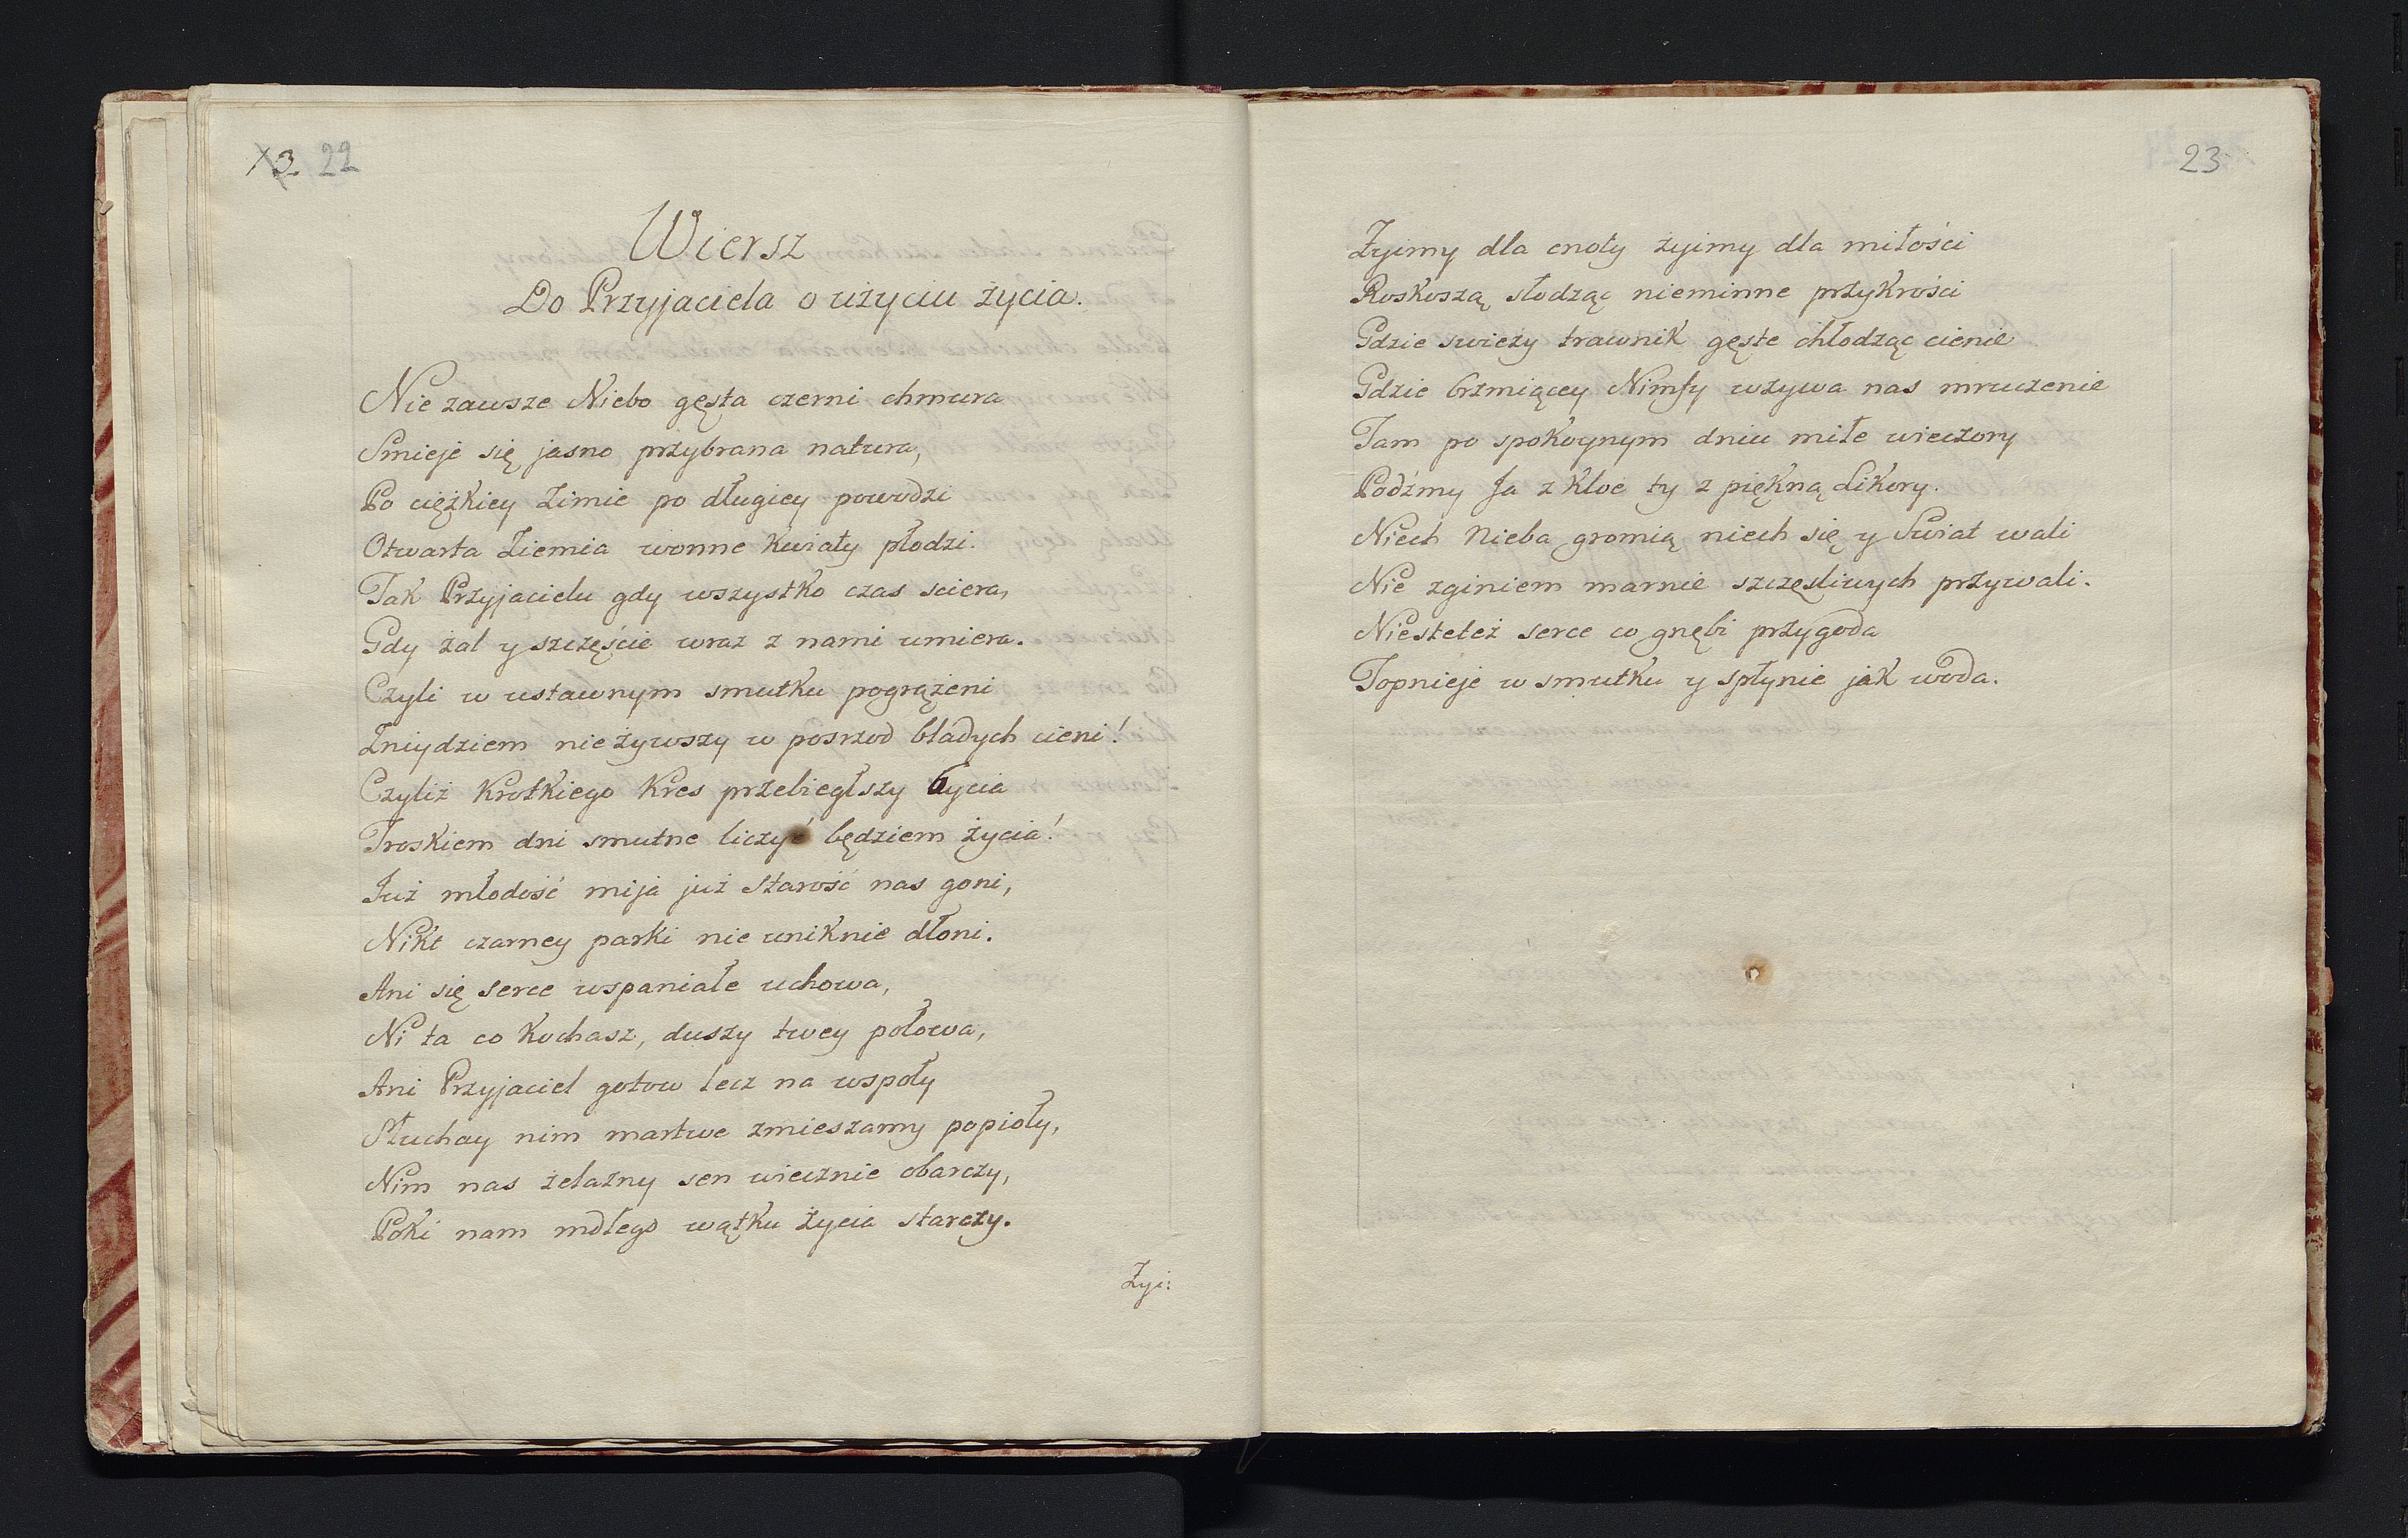 13 22
Wiersz
Do Przyjaciela o użyciu życia.
Nie zawsze Niebo gęsta czerni chmura
Smieje się jasno przybrana natura,
Po ciężkiey Zimie po długiey powodzi
Otwarta Ziemia wonne kwiaty płodzi.
Tak Przyjacielu gdy wszystko czas sciera,
Gdy żal y szczęście wraz z nami umiera.
Czyli w ustawnym smutku pogrążeni
Zniydziem nie żywszy w posrzod bladych cieni!
Czyliż krotkiego kres przebiegłszy bycia
Troskiem dni smutne liczyć będziem życia!
Już młodość mija już starość nas goni,
Nikt czarney parki nie uniknie dłoni.
Ani się serce wspaniałe uchowa,
Ni ta co kochasz, duszy twey połowa,
Ani Przyjaciel gotow lecz na wspoły
Słuchay nim martwe zmieszamy popioły,
Nim nas żelazny sen wiecznie obarczy,
Poki nam mdłego wątku życia starczy.
Żyi:
23
Żyimy dla cnoty żyimy dla miłości
Roskoszą słodząc nieminne przykrości
Gdzie swieży trawnik gęste chłodząc cienie
Gdzie brzmiącey Nimfy wzywa nas mruczenie
Tam po spokoynym dniu miłe wieczory
Podźmy Ja z Kloe ty z piękną Likory.
Niech Nieba gromią niech się y Swiat wali
Nie zginiem marnie szczęsliwych przywali.
Niesteteż serce co gnębi przygoda
Topnieje w smutku y spłynie jak woda.